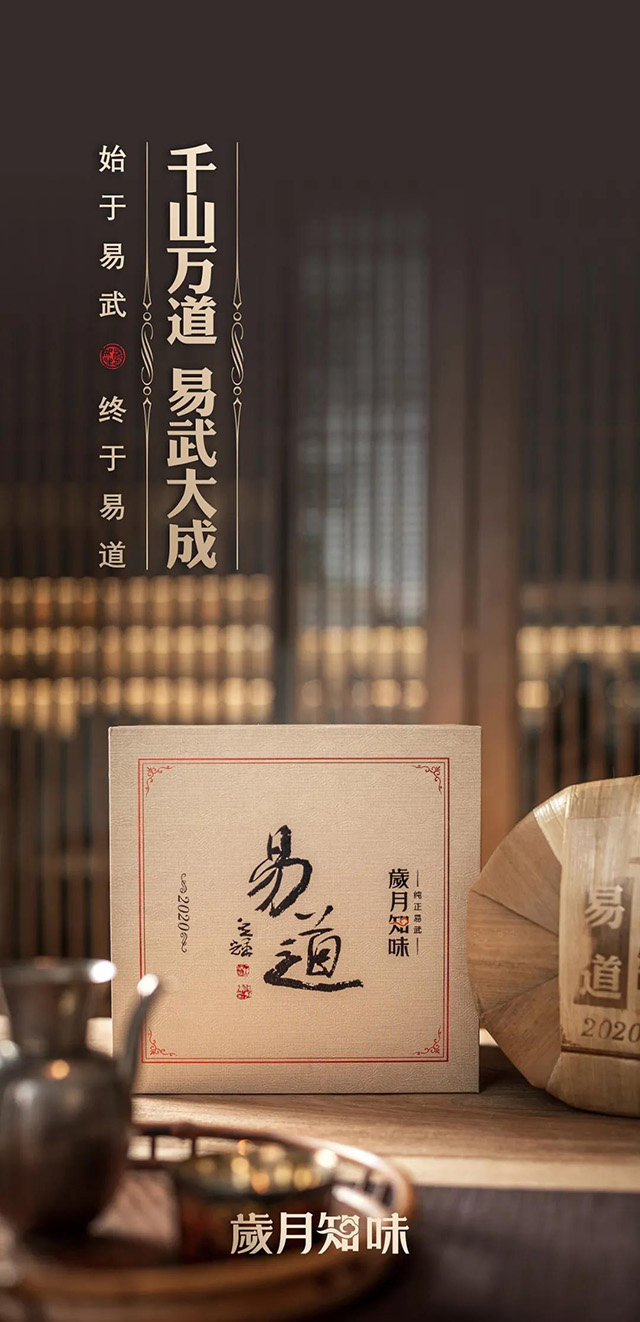 千山万道 易武大成
始于易武 终于易道
易道
歲月知味
纯正易武
2020
易道
2020
歲月知味